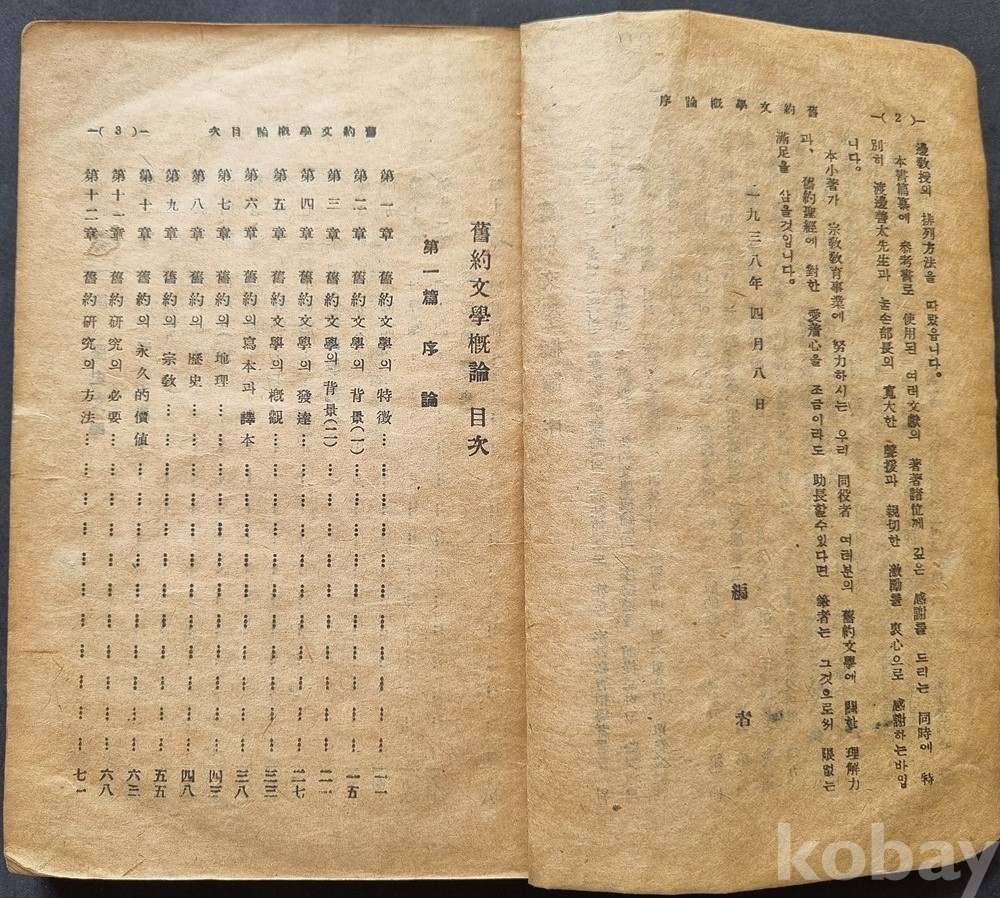 舊約文學概論序
—( 2 )—
邊敎授의 排列方法을 따랐읍니다。
本書篇纂에 參考書로 使用된 여러文獻의 著者諸位께 깊은 感謝를 드리는 同時에 特
別히 渡邊善太先生과 눌손部長의 寬大한 聲援과 親切한 激勵를 衷心으로 感謝하는바입
니다。
本小著가 宗敎敎育事業에 努力하시는 우리 同役者 여러분의 舊約文學에 關한 理解力
과、 舊約聖經에 對한 愛着心을 조금이라도 助長할수있다면 筆者는 그것으로써 限없는
滿足을 삼을것입니다。
一九三八年 四月八日
編 者
舊約文學概論目次
—( 3 )—
舊約文學概論 目次
第一篇 序論
第一章 舊約文學의 特徵…………一一
第二章 舊約文學의 背景(一)…………一五
第三章 舊約文學의 背景(二)…………二一
第四章 舊約文學의 發達…………二七
第五章 舊約文學의 概觀…………三三
第六章 舊約의 寫本과 譯本…………三八
第七章 舊約의 地理…………四三
第八章 舊約의 歷史…………四八
第九章 舊約의 宗敎…………五五
第十章 舊約의 永久的價値…………六三
第十一章 舊約研究의 必要…………六八
第十二章 舊約研究의 方法…………七一
kobay